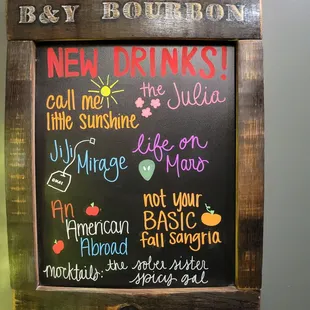 B&Y BOURBON
NEW DRINKS!
call me
little sunshine
the Julia
JiJi
Mirage
life on
Mars
An
American
Abroad
not your
BASIC
fall sangria
mocktails: the sober sister
spicy gal